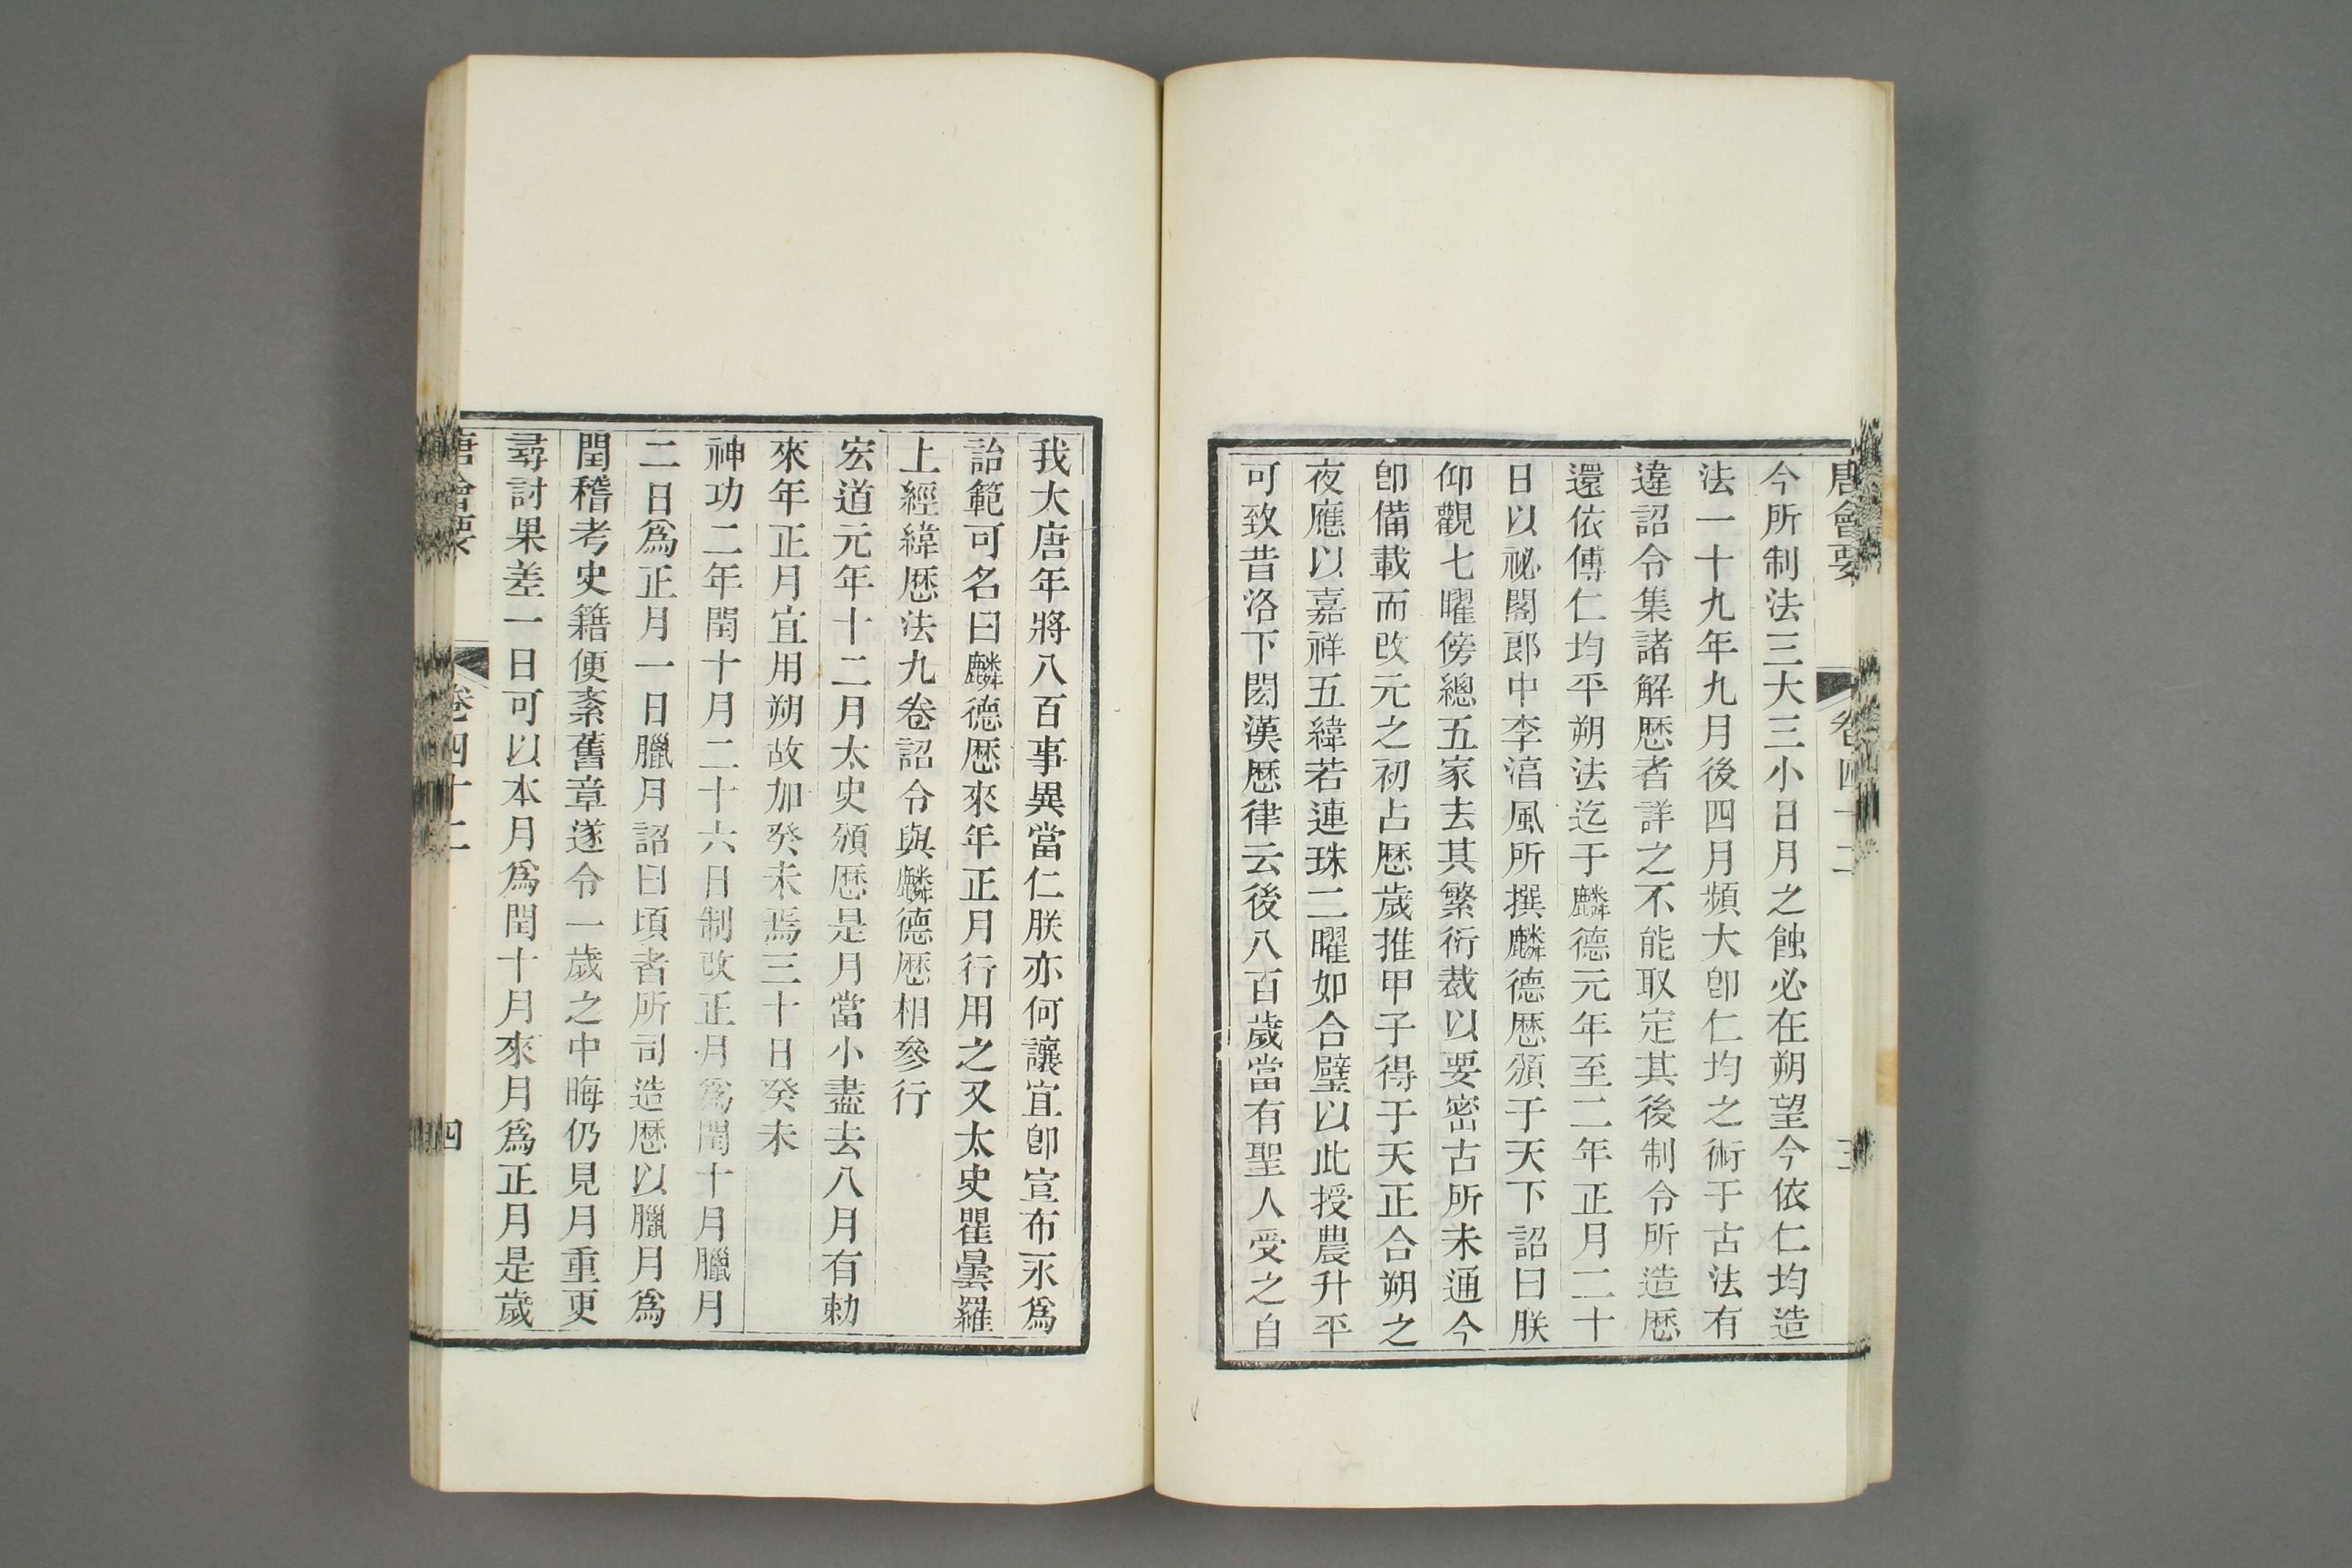 唐會要 卷四十二 三
今所制法三大三小日月之蝕必在朔望今依仁均造
法一十九年九月後四月頻大卽仁均之術于古法有
違詔令集諸解厯者詳之不能取定其後制令所造厯
還依傅仁均平朔法迄于麟德元年至二年正月二十
日以祕閣郞中李湻風所撰麟德厯頒于天下詔曰朕
仰觀七曜傍總五家去其繁衍裁以要密古所未通今
卽備載而改元之初占厯歲推甲子得于天正合朔之
夜應以嘉祥五緯若連珠二曜如合璧以此授農升平
可致昔洛下閎漢厯律云後八百歲當有聖人受之自
我大唐年將八百事異當仁朕亦何讓宜卽宣布永爲
詒範可名曰麟德厯來年正月行用之又太史瞿曇羅
上經緯厯法九卷詔令與麟德厯相參行
宏道元年十二月太史頒厯是月當小盡去八月有勅
來年正月宜用朔故加癸未焉三十日癸未
神功二年閏十月二十六日制改正月爲閏十月臘月
二日爲正月一日臘月詔曰頃者所司造厯以臘月爲
閏稽考史籍便紊舊章遂令一歲之中晦仍見月重更
尋討果差一日可以本月爲閏十月來月爲正月是歲
唐會要 卷四十二 四